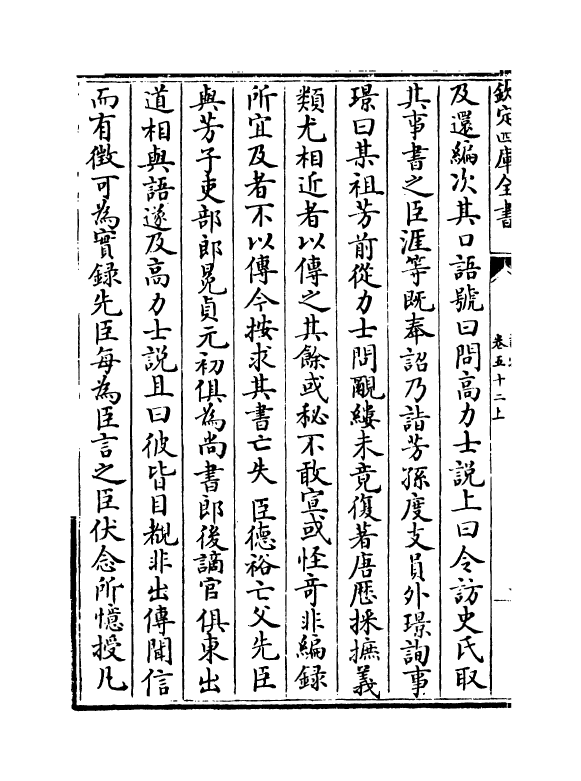 欽定四庫全書
卷五十二上
及還編次其口語號曰問高力士説上曰令訪史氏取
其事書之臣涯等既奉詔乃詣芳孫度支員外璟詢事
璟曰某祖芳前從力士問覼縷未竟復著唐歷採摭義
類尤相近者以傳之其餘或秘不敢宣或怪竒非編録
所宜及者不以傳今按求其書亡失 臣德裕亡父先臣
與芳子吏部郎冕貞元初俱為尚書郎後謫官俱東出
道相與語遂及高力士説且曰彼皆目覩非出傳聞信
而有徵可為實録先臣每為臣言之臣伏念所憶授凡